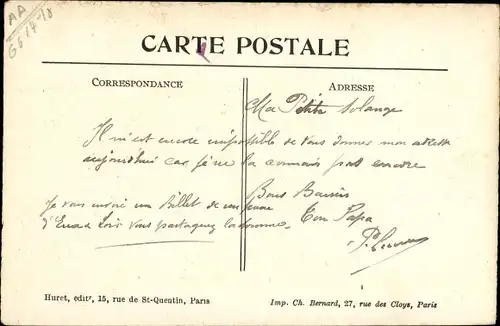 AA
CARTE POSTALE
CORRESPONDANCE
ADRESSE
Ma Petite Solange
Il m'est encore impossible de vous donner mon adresse
aujourd'hui car je ne la connais pas encore
Je vous envoie un Billet de un franc
d'Eure & Loir Vous partagerez la somme.
Bons Baisers
Ton Papa
Huret, édit^r, 15, rue de St-Quentin, Paris
Imp. Ch. Bernard, 27, rue des Cloys, Paris